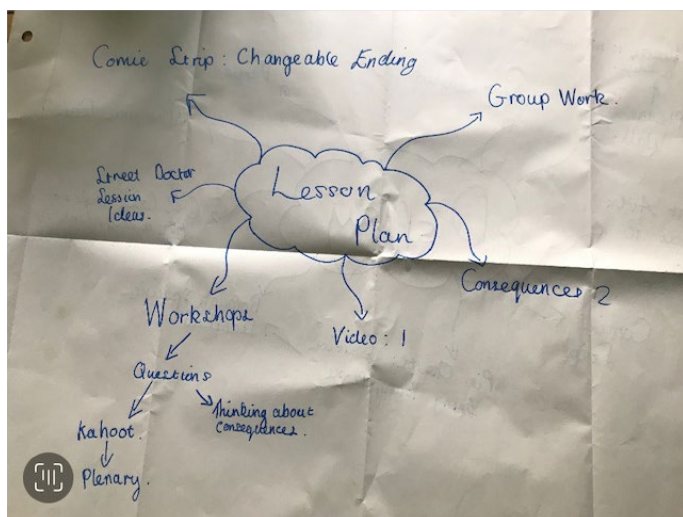 Comic Strip : Changeable Ending
Group Work.
Street Doctor
Session
Ideas.
Lesson
Plan
Consequences 2
Workshops
Video : 1
Questions
Thinking about
Consequences.
Kahoot.
Plenary.